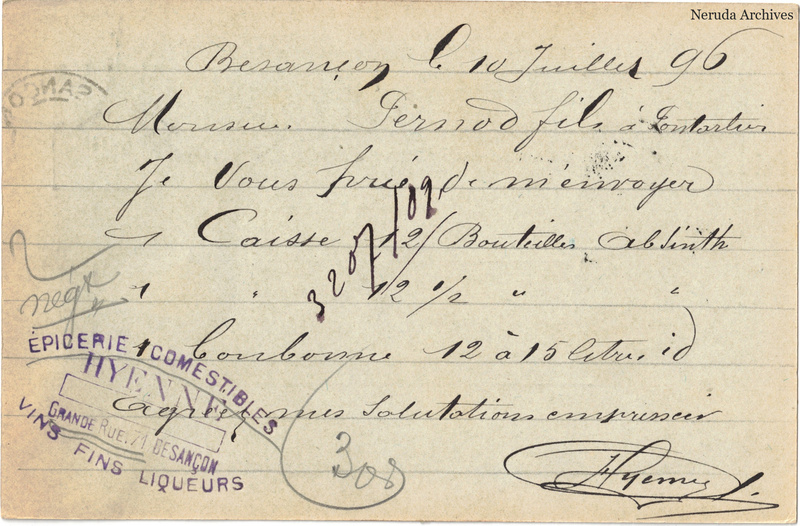 Neruda Archives
Besançon le 10 Juillet 96
Monsieur Pernod fils à Pontarlier
Je Vous prie de m'envoyer
1 Caisse 12/ Bouteilles absinth
1 " 12 1/2 " "
1 bonbonne 12 à 15 litres id
agréez mes salutations empressées
Hyenne
3207/109
négt
308
ÉPICERIE COMESTIBLES
HYENNE
GRANDE RUE. 71 BESANÇON
VINS FINS LIQUEURS